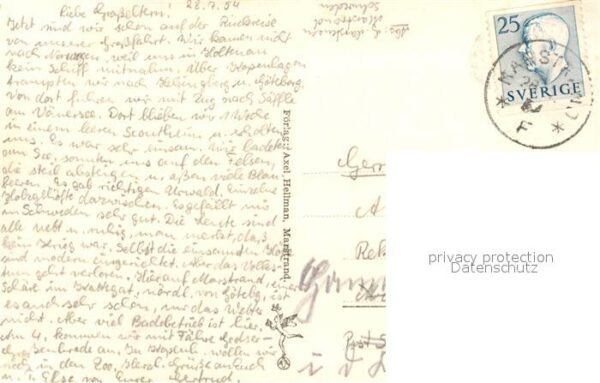 liebe Großeltern! 28.7.54
Jetzt sind wir schon auf der Rückreise
von unserer Großfahrt. Wir kamen nicht
nach Norwegen, weil uns in Holtenau
kein Schiff mitnahm. Über Kopenhagen
trampten wir nach Helsingborg u. Göteborg.
Von dort fuhren wir mit Zug nach Säffle
am Vänersee. Dort blieben wir 1 Woche
in einem leeren Scoutheim u. erholten
uns. Es war sehr einsam. Wir badeten
am See, sonnten uns auf den Felsen,
die steil abstiegen u. aßen viele Blau
beeren. Es gab richtigen Urwald. Einzelne
Holzgehöfte dazwischen. Es gefällt mir
in Schweden sehr gut. Die Leute sind
alle nett u. ruhig, man merkt, daß
kein Krieg war. Selbst die einsamsten
sind modern eingerichtet. Aber das
geht verloren. Hier auf Marstrand, einer
Schäre im Kattegat, nördl. von Göteborg, ist
es auch sehr schön, nur das Wetter
nicht. Aber viel Badebetrieb ist hier.
Am 4. kommen wir mit Fähre Gedser-
Großenbrode an. In Kopenh. wollen wir
noch in den Zoo. Herzl. Grüße an Euch
u. Else von Eurer
Marstrand
Schweden
25
SVERIGE
MARSTRAND
F
Förlag: Axel Hellman, Marstrand.
privacy protection
Datenschutz